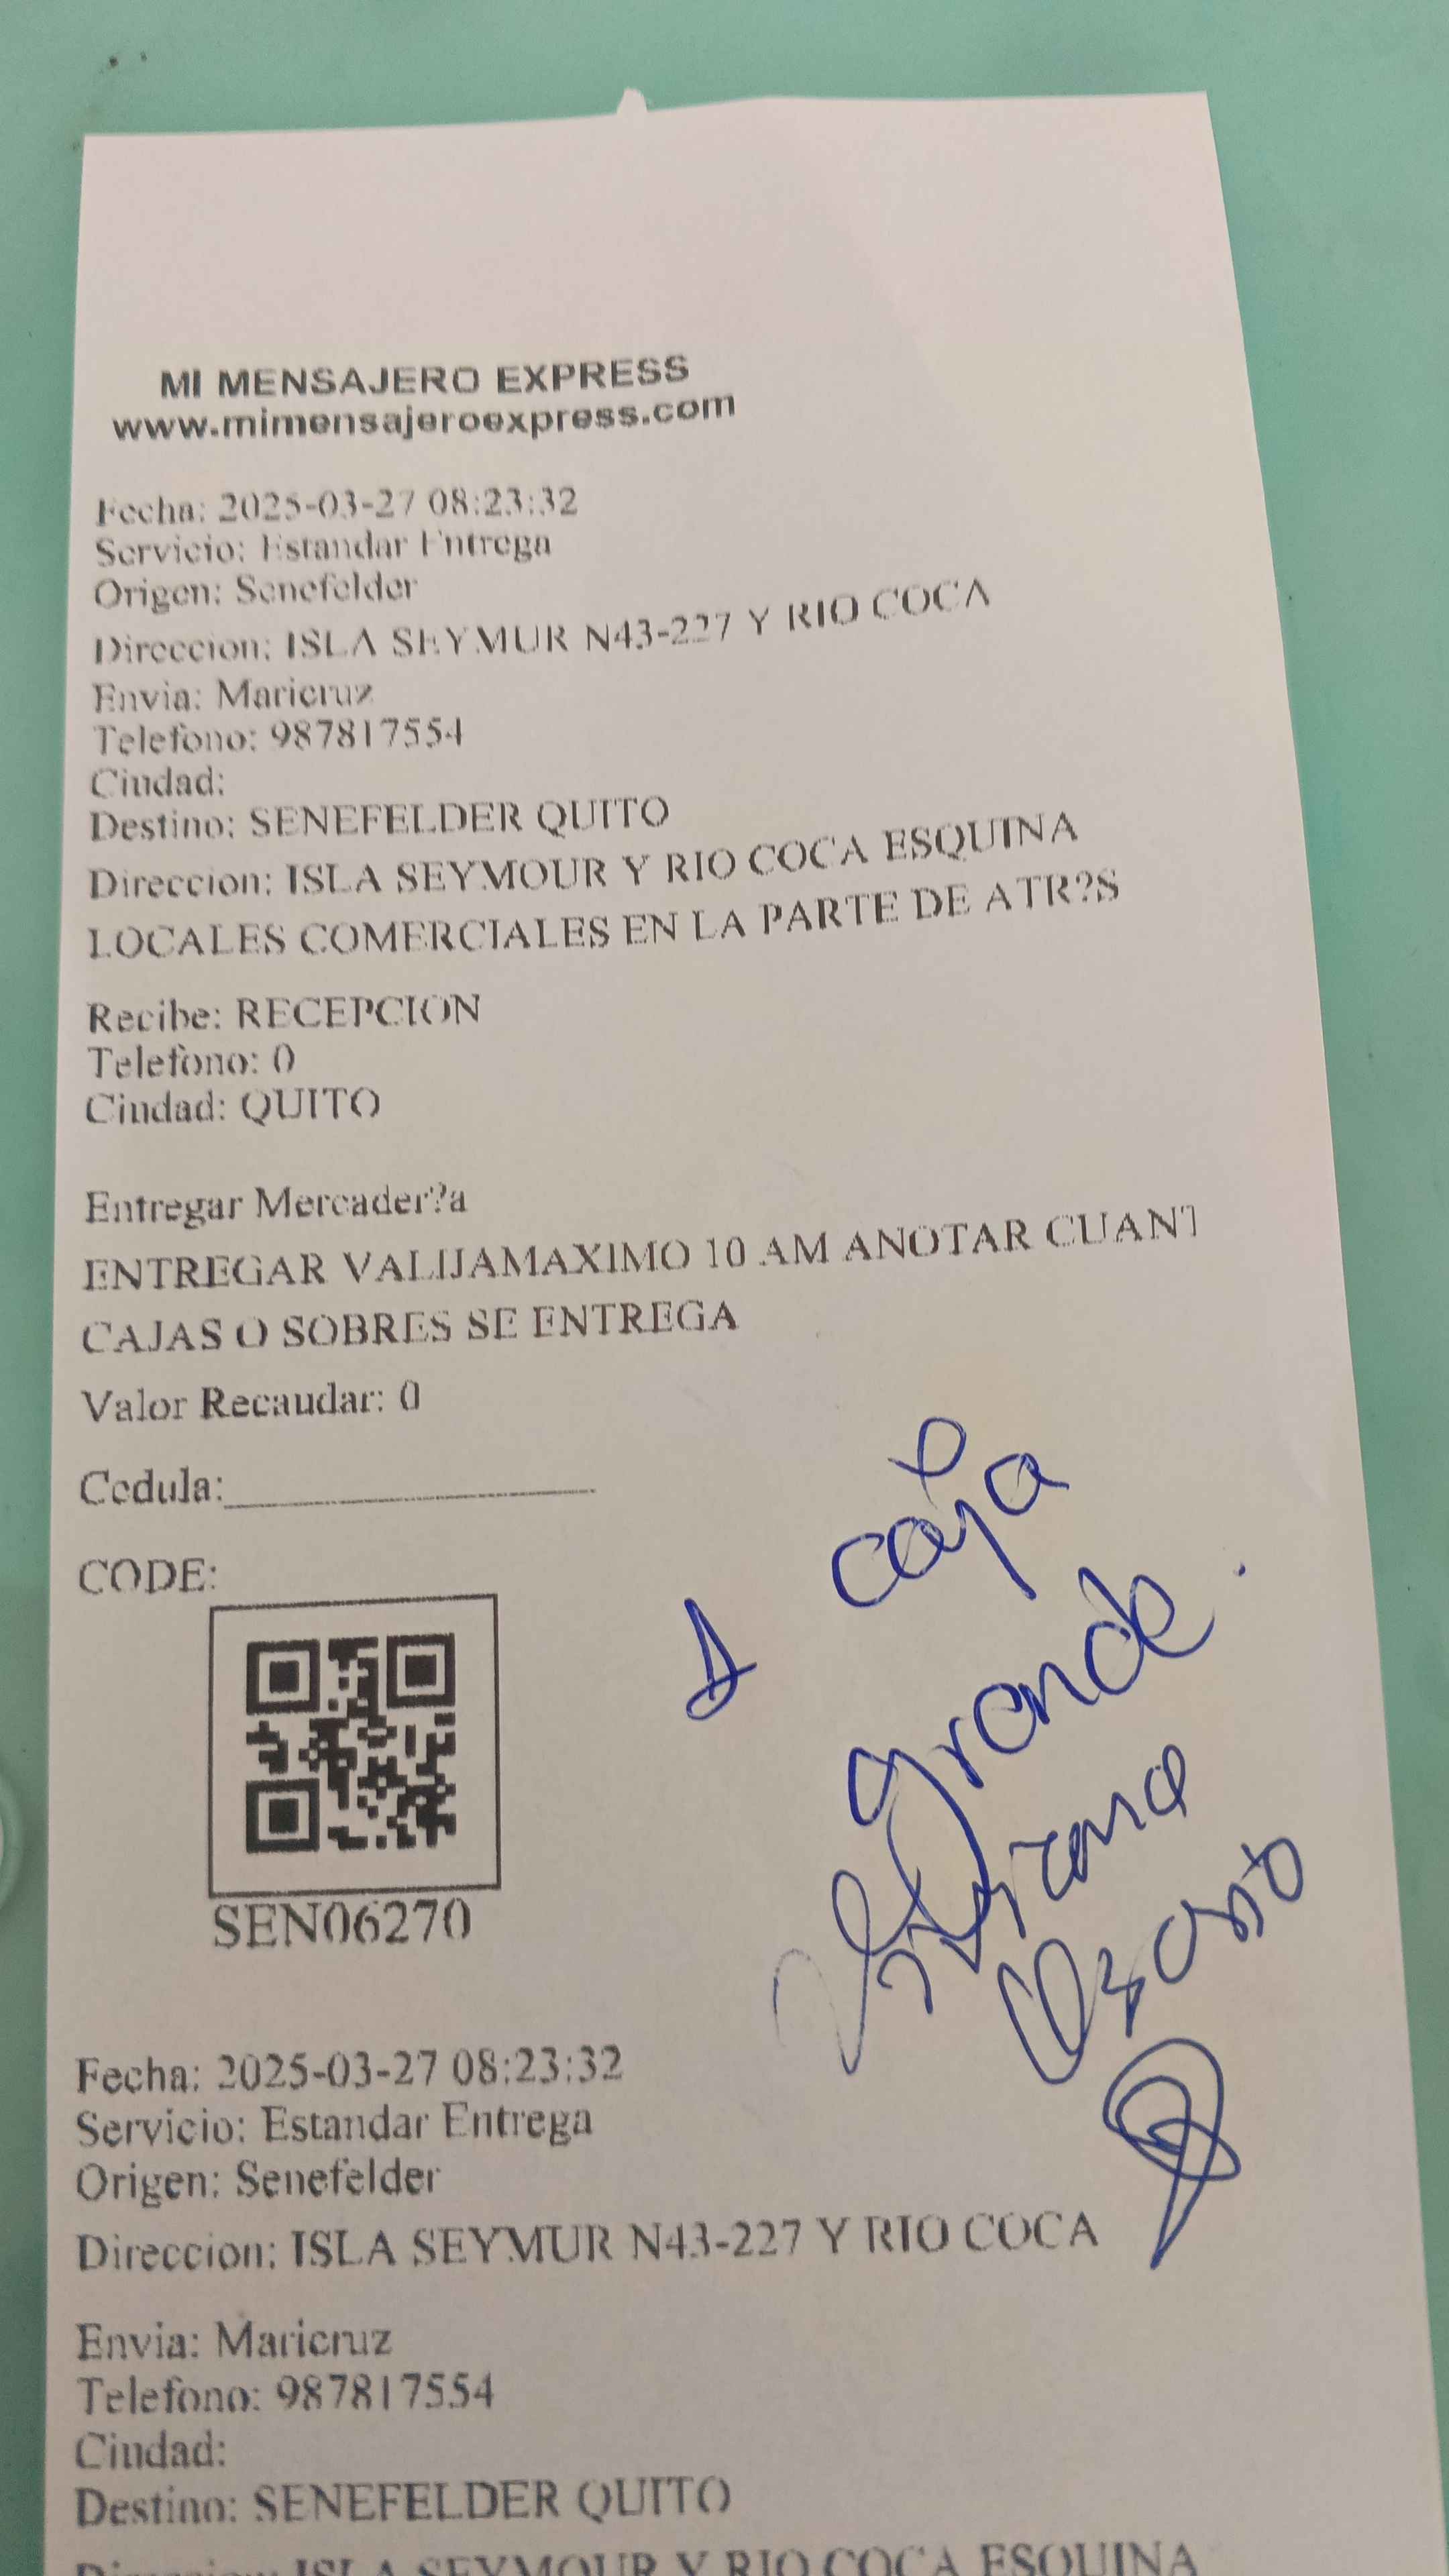 MI MENSAJERO EXPRESS
www.mimensajeroexpress.com
Fecha: 2025-03-27 08:23:32
Servicio: Estandar Entrega
Origen: Senefelder
Direccion: ISLA SEYMUR N43-227 Y RIO COCA
Envia: Maricruz
Telefono: 987817554
Ciudad:
Destino: SENEFELDER QUITO
Direccion: ISLA SEYMOUR Y RIO COCA ESQUINA
LOCALES COMERCIALES EN LA PARTE DE ATR?S
Recibe: RECEPCION
Telefono: 0
Ciudad: QUITO
Entregar Mercader?a
ENTREGAR VALIJAMAXIMO 10 AM ANOTAR CUANT
CAJAS O SOBRES SE ENTREGA
Valor Recaudar: 0
Cedula:
CODE:
1 caja
grande.
Osorio
SEN06270
Fecha: 2025-03-27 08:23:32
Servicio: Estandar Entrega
Origen: Senefelder
Direccion: ISLA SEYMUR N43-227 Y RIO COCA
Envia: Maricruz
Telefono: 987817554
Ciudad:
Destino: SENEFELDER QUITO
Direccion: ISLA SEYMOUR Y RIO COCA ESQUINA